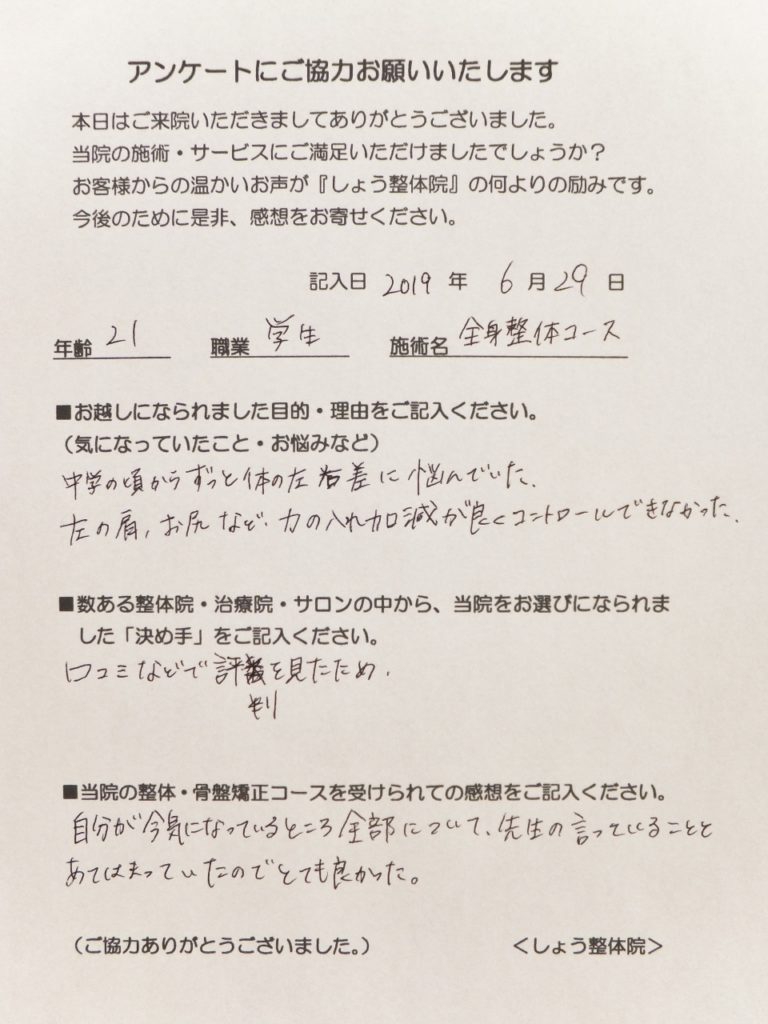 アンケートにご協力お願いいたします
本日はご来院いただきましてありがとうございました。
当院の施術・サービスにご満足いただけましたでしょうか？
お客様からの温かいお声が『しょう整体院』の何よりの励みです。
今後のために是非、感想をお寄せください。
記入日 2019 年 6 月 29 日
年齢 21 職業 学生 施術名 全身整体コース
■お越しになられました目的・理由をご記入ください。
（気になっていたこと・お悩みなど）
中学の頃からずっと体の左右差に悩んでいた、
左の肩、お尻など、力の入れ加減が良くコントロールできなかった、
■数ある整体院・治療院・サロンの中から、当院をお選びになられま
した「決め手」をご記入ください。
口コミなどで評判を見たため、
■当院の整体・骨盤矯正コースを受けられての感想をご記入ください。
自分が今気になっているところ全部について、先生の言っていることと
あてはまっていたのでとても良かった。
（ご協力ありがとうございました。） ＜しょう整体院＞